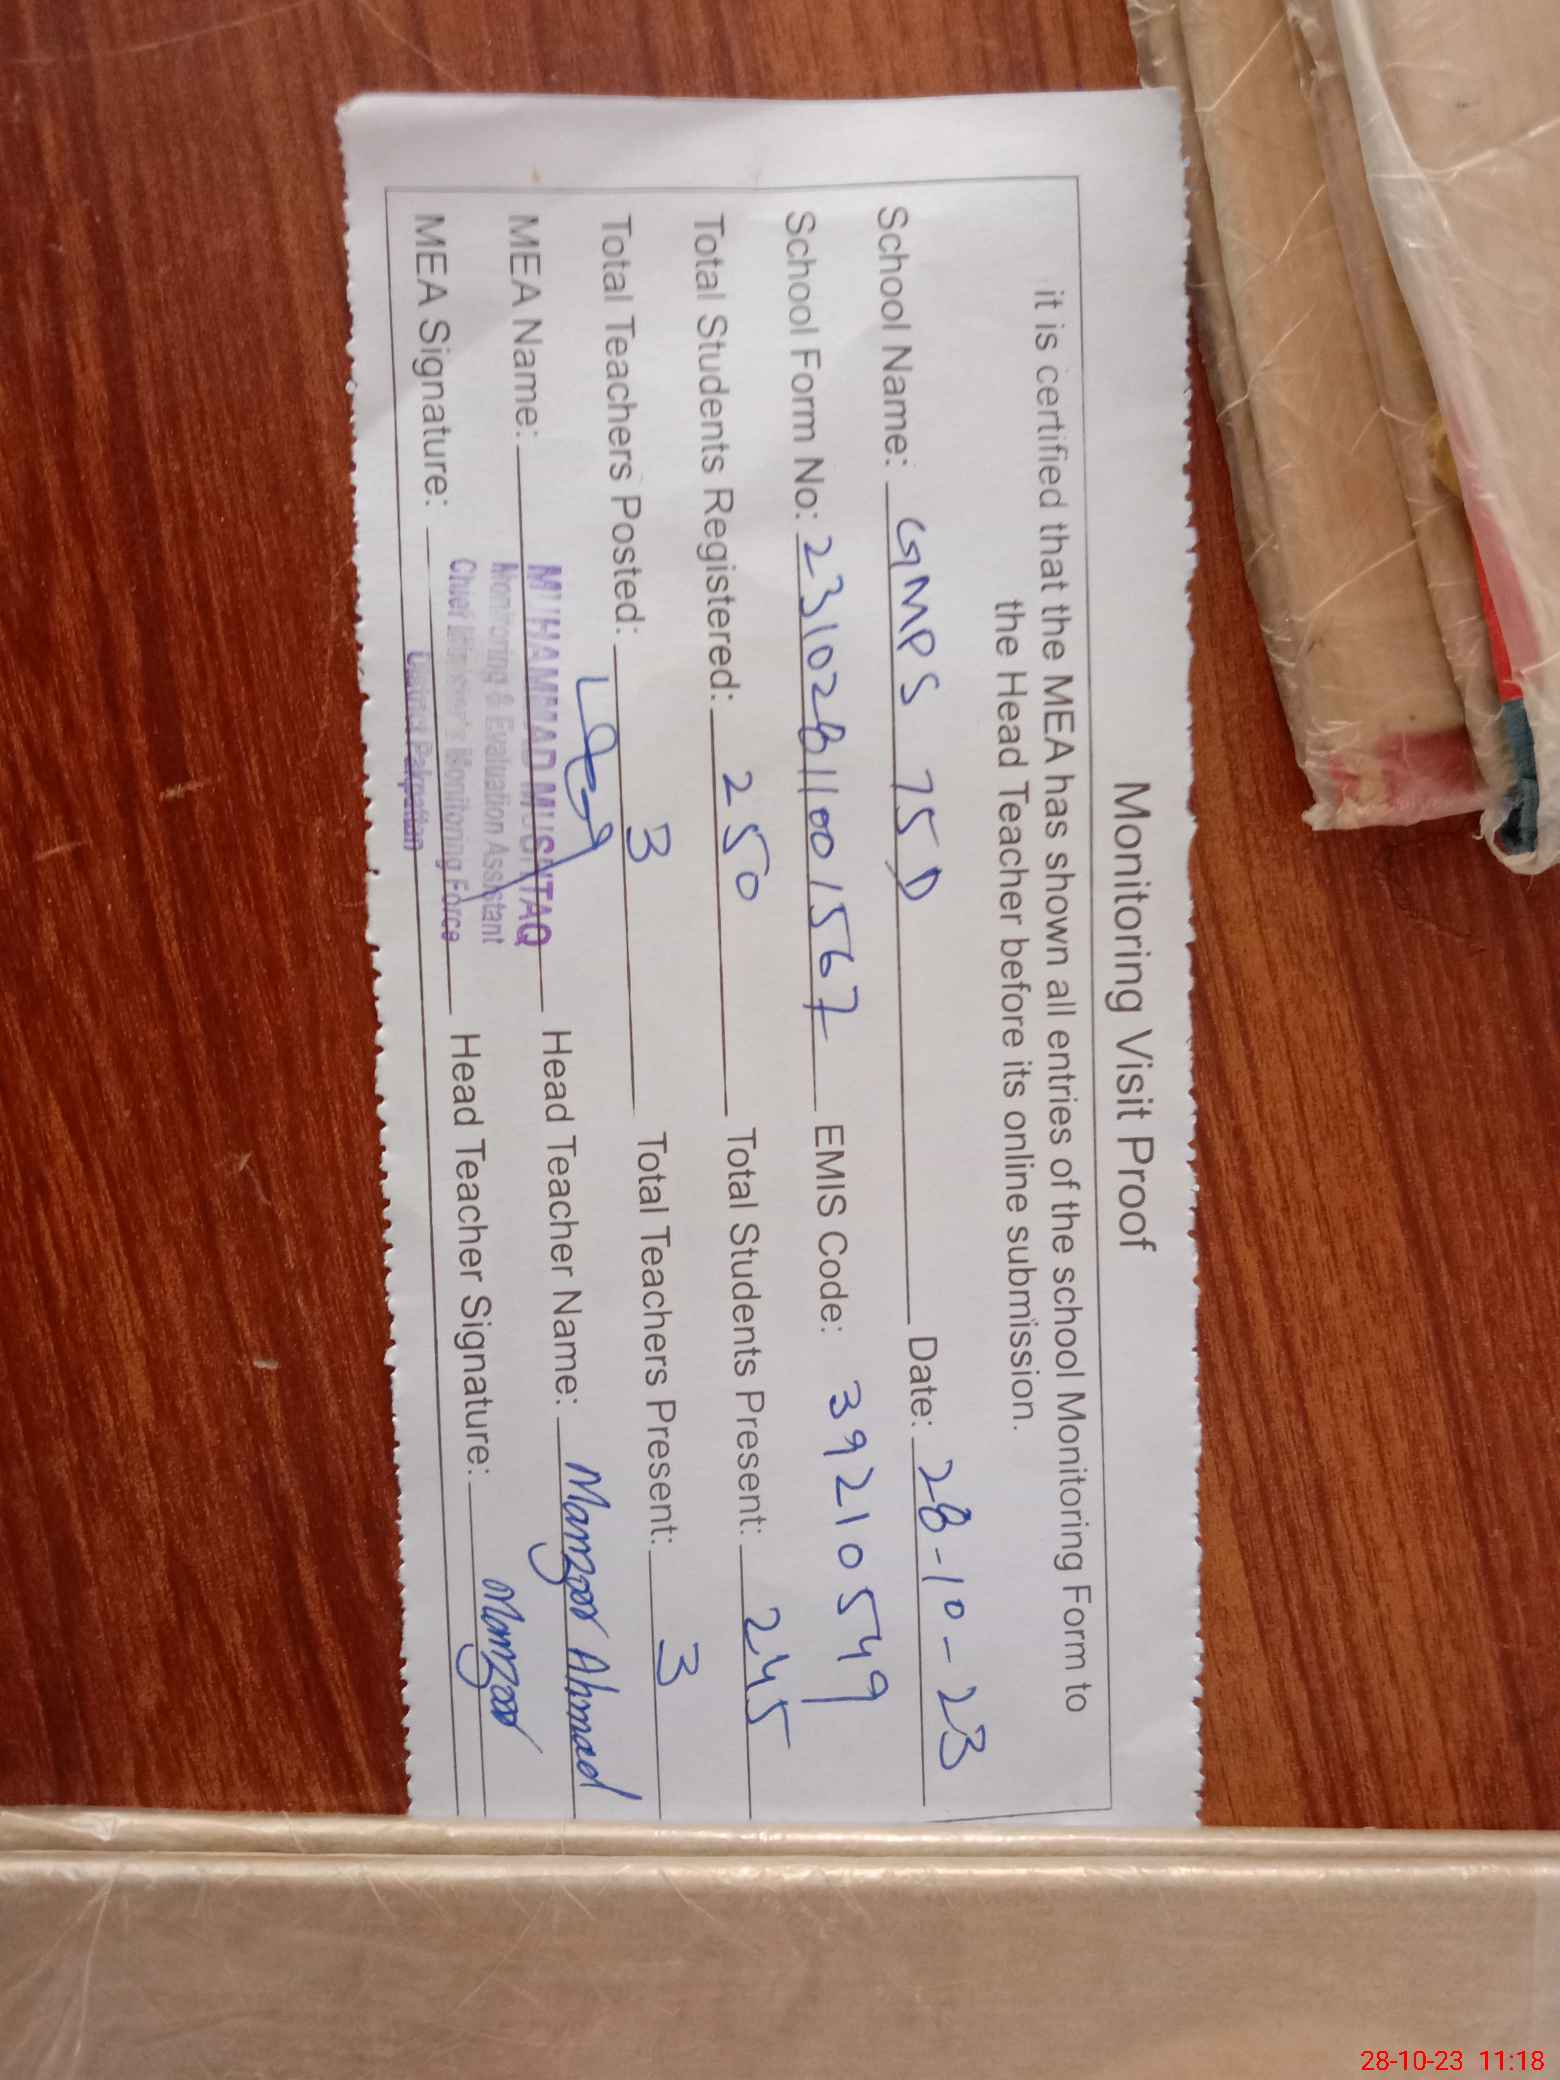 Monitoring Visit Proof
it is certified that the MEA has shown all entries of the school Monitoring Form to
the Head Teacher before its online submission.
School Name: GMPS 75D Date: 28-10-23
School Form No: 23102811001567 EMIS Code: 39210549
Total Students Registered: 250 Total Students Present: 245
Total Teachers Posted: 3 Total Teachers Present: 3
MEA Name: MUHAMMAD MUSHTAQ Head Teacher Name: Manzoor Ahmad
Monitoring & Evaluation Assistant
MEA Signature: Chief Minister's Monitoring Force Head Teacher Signature: Manzoor
District Pakpattan
28-10-23 11:18